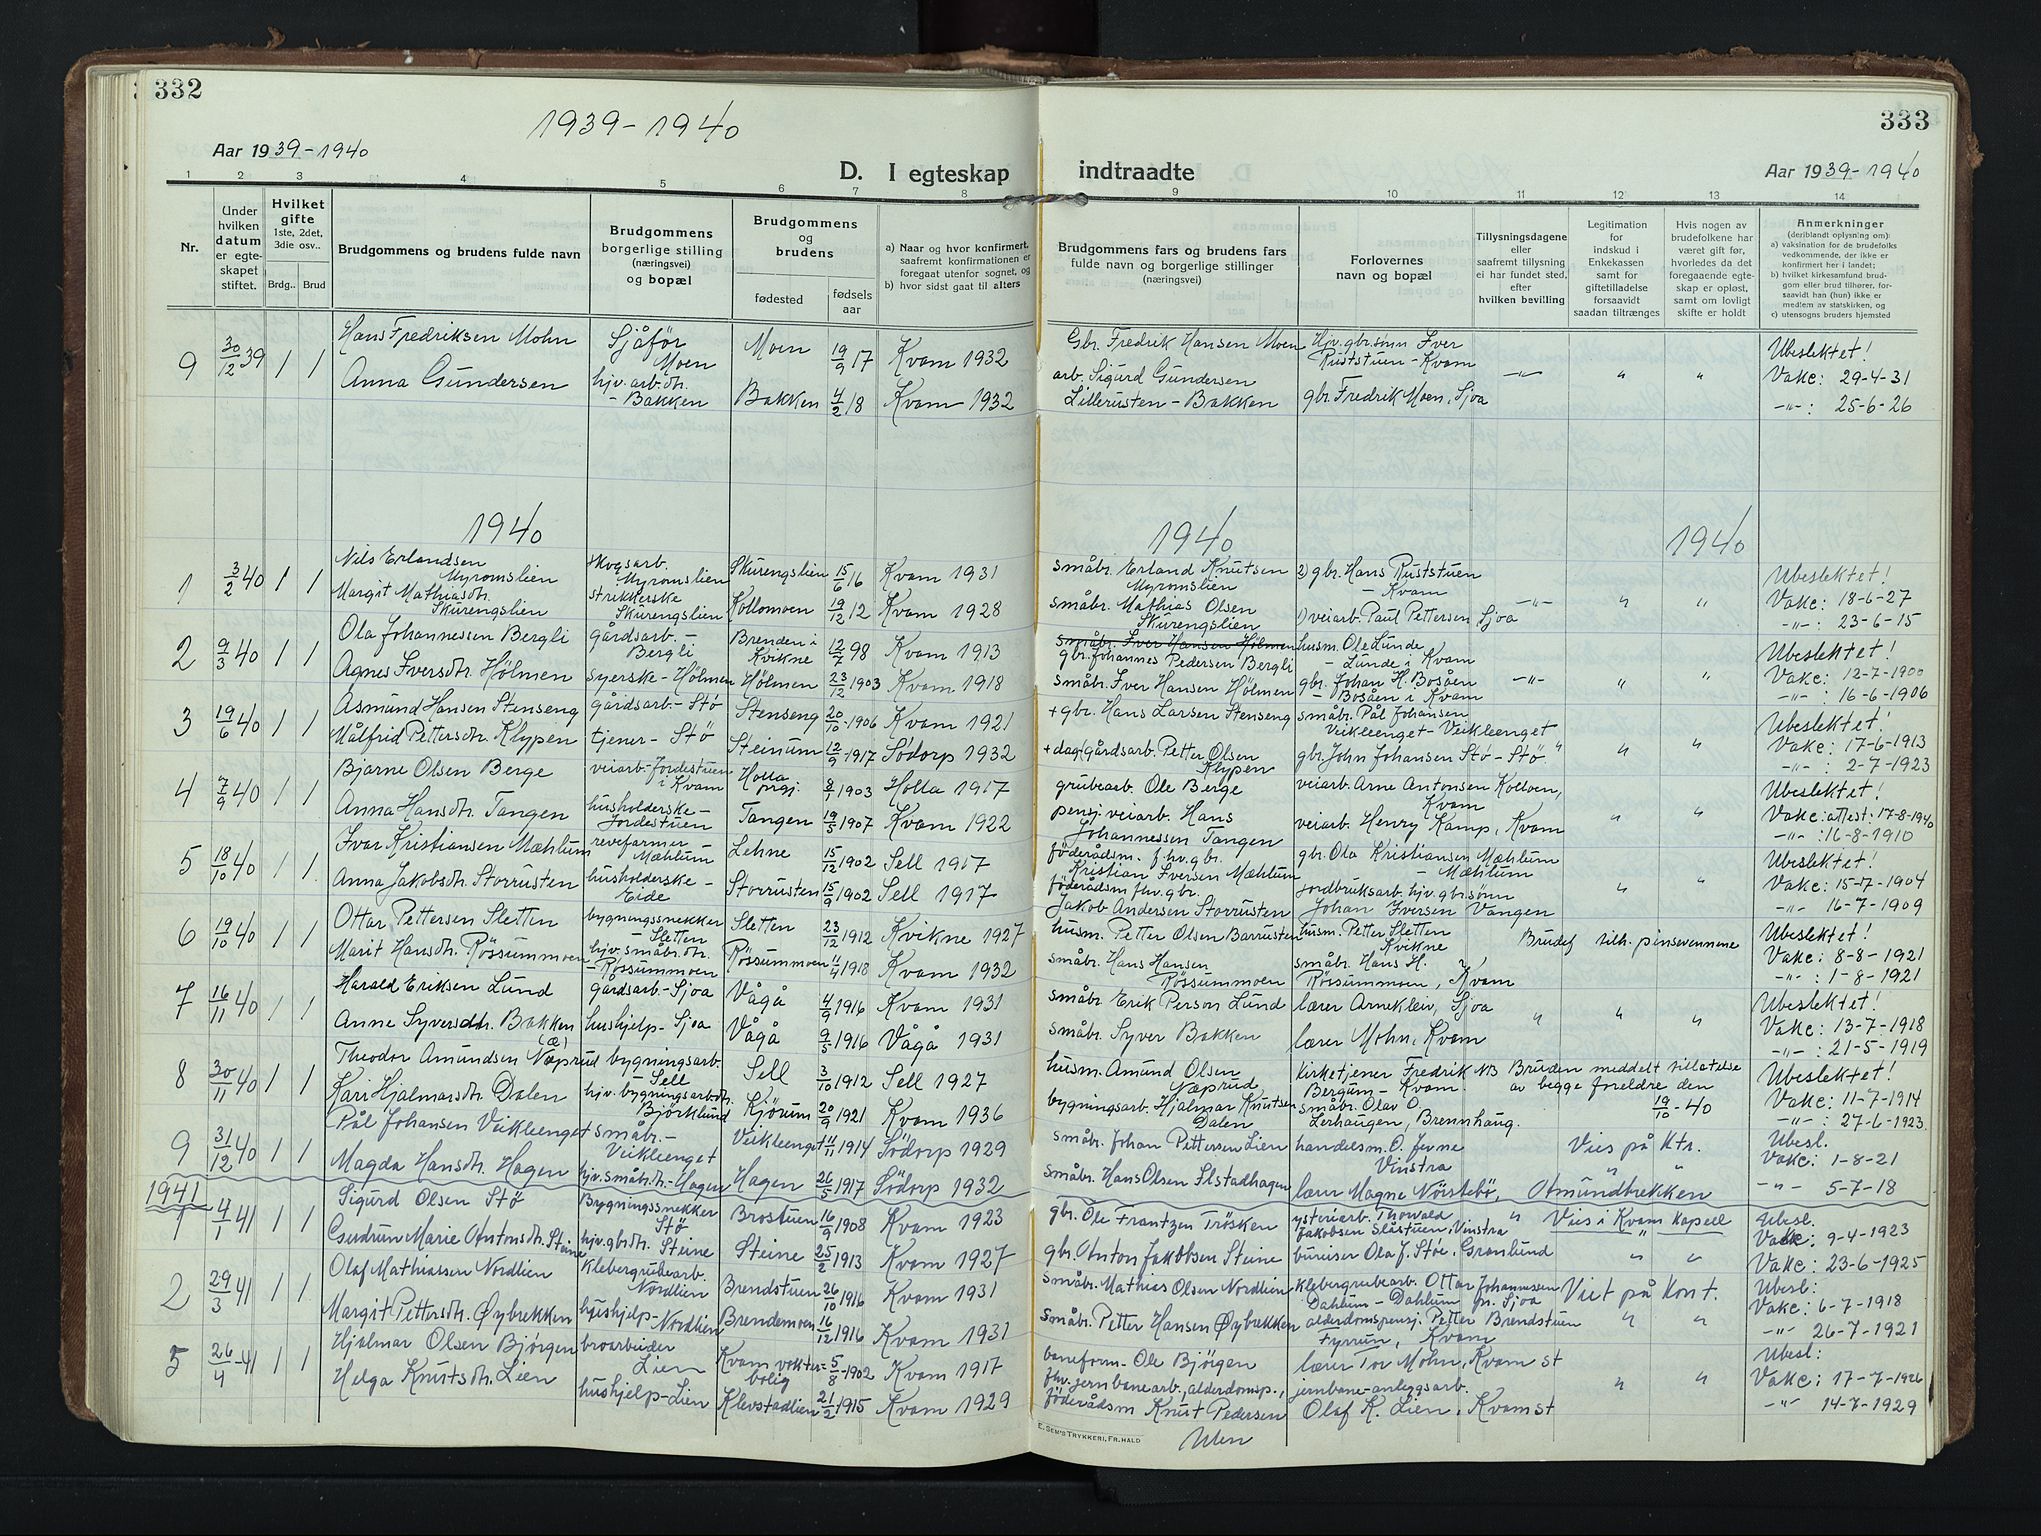 332
1939-1940
Aar 1939-1940
D. I egteskap
1 2 3 4 5 6 7 8
Nr.
Under hvilken datum er egteskapet stiftet.
Hvilket gifte 1ste, 2det, 3die osv..
Brdg.. Brud
Brudgommens og brudens fulde navn
Brudgommens borgerlige stilling (næringsvei) og bopæl
Brudgommens og brudens
fødested
fødselsaar
a) Naar og hvor konfirmert, saafremt konfirmationen er foregaat utenfor sognet, og
b) hvor sidst gaat til alters
9 30/12 39 1 1 Hans Fredriksen Mohn Sjåfør Moen Moen 19/9 17 Kvam 1932
Anna Gundersen hjv. arb. dtr. - Bakken Bakken 4/2 18 Kvam 1932
1940
1 3/2 40 1 1 Nils Erlandsen Myromslien skogsarb. Myromslien Skurengslien 15/6 16 Kvam 1931
Margit Mathiasdtr. Skurengslien strikkerske Skurengslien Kollomoen 19/12 12 Kvam 1928
2 9/3 40 1 1 Ola Johannessen Bergli gårdsarb. - Bergli Brenden i Kvikne 12/7 98 Kvam 1913
Agnes Iversdtr. Hölmen syerske - Hölmen Hölmen 23/12 1903 Kvam 1918
3 19/6 40 1 1 Asmund Hansen Stenseng gårdsarb. - Stø Stenseng 20/10 1906 Kvam 1921
Målfrid Pettersdtr. Klypen tjener - Stö Steinum 12/9 1917 Södorp 1932
4 7/9 40 1 1 Bjarne Olsen Berge veiarb. - Jordestuen i Kvam Holla prgj. 8/1 1903 Holla 1917
Anna Hansdtr. Tangen husholderske - Jordestuen Tangen 19/5 1907 Kvam 1922
5 18/10 40 1 1 Ivar Kristiansen Mæhlum revefarmer Mæhlum Lehne 15/12 1902 Sell 1917
Anna Jakobsdtr. Storrusten husholderske - Eide Storrusten 15/9 1902 Sell 1917
6 19/10 40 1 1 Ottar Pettersen Sletten bygningssnekker - Sletten Sletten 23/12 1912 Kvikne 1927
Marit Hansdtr. Rössummoen hjv. småbr. dtr. - Rössummoen Rössummoen 11/4 1918 Kvam 1932
7 16/11 40 1 1 Harald Eriksen Lund gårdsarb. - Sjoa Vågå 4/9 1916 Kvam 1931
Anne Syversdtr. Bakken hushjelp - Sjoa Vågå 9/5 1916 Vågå 1931
(æ)
8 30/11 40 1 1 Theodor Amundsen Næprud bygningsarb. - Sell Sell 3/10 1912 Sell 1927
Kari Hjalmarsdtr. Dalen hjv. bygningsarb. dtr. Björklund Kjörum 20/9 1921 Kvam 1936
9 31/12 40 1 1 Pål Johansen Veikleenget småbr. - Veikleenget Veikleenget 11/11 1914 Södorp 1929
Magda Hansdtr. Hagen hjv. småbr. dtr. - Hagen Hagen 26/5 1917 Södorp 1932
1941
1 4/1 41 1 1 Sigurd Olsen Stø Bygningssnekker Stø Brostuen 16/9 1908 Kvam 1923
Gudrun Marie Antonsdtr. Steine hjv. gbr. dtr. Steine Steine 25/2 1913 Kvam 1927
2 29/3 41 1 1 Olaf Mathiassen Nordlien Klebergrubearb. Nordlien Brendstuen 26/10 1916 Kvam 1931
Margit Pettersdtr. Øybrekken hushjelp - Nordlien Brendemoen 16/12 1916 Kvam 1931
5 26/4 - 41 1 1 Hjalmar Olsen Bjørgen broarbeider Lien Kvam vokterbolig 5/8 1902 Kvam 1917
Helga Knutsdtr. Lien hushjelp - Lien Klevstadlien 21/2 1915 Kvam 1929
333
indtraadte
Aar 1939-1940
9 10 11 12 13 14
Brudgommens fars og brudens fars fulde navn og borgerlige stillinger (næringsvei)
Forlovernes navn og bopæl
Tillysningsdagene eller saafremt tillysning ei har fundet sted, efter hvilken bevilling
Legitimation for indskud i Enkekassen samt for giftetilladelse forsaavidt saadan tiltrænges
Hvis nogen av brudefolkene har været gift før, hvorledes da det foregaaende egteskap er opløst, samt om lovligt skifte er holdt
Anmerkninger (deriblandt oplysning om): a) vaksination for de brudefolks vedkommende, der ikke er konfirmert her i landet; b) hvilket kirkesamfund brudgom eller brud tilhører, forsaavidt han (hun) ikke er medlem av statskirken, og c) utensogns bruders hjemsted
Gbr. Fredrik Hansen Moen Hjv. gbr. sønn Iver Ruststuen - Kvam Ubeslektet!
-"- " " Vakc: 29-4-31
arb. Sigurd Gundersen Lillerusten - Bakken gbr. Fredrik Moen, Sjoa -"-: 25-6-26
1940 1940
småbr. Erland Knutsen Myromslien 2) gbr. Hans Ruststuen - Kvam Ubeslektet!
-"- " " Vakc: 18-6-27
småbr. Mathias Olsen Skurengslien 1) veiarb. Paul Pettersen Sjoa -"-: 23-6-15
småbr. Iver Hansen Hölmen
gbr. Johannes Pedersen Bergli husm. Ole Lunde - Lunde i Kvam Ubeslektet!
-"- " " Vakc: 12-7-1900
småbr. Iver Hansen Hölmen gbr. Johan H. Bosåen - Bosåen i Kvam -"-: 16-6-1906
+ gbr. Hans Larsen Stenseng småbr. Pål Johansen Veikleenget - Veikleenget Ubeslektet!
" " Vakc: 17-6-1913
+ dag/gårdsarb. Petter Olsen Klypen gbr. John Johansen Stö - Stö " -"-: 2-7-1923
grubearb. Ole Berge veiarb. Arne Antonsen Kolloen, Kvam Ubeslektet!
" " Vakc: attest: 17-8-1940
pensj. veiarb. Hans Johannessen Tangen veiarb. Henry Kamp, Kvam -"-: 16-8-1910
föderådsm. fhv. gbr. Kristian Iversen Mæhlum gbr. Ola Kristiansen Mæhlum - Mæhlum Ubeslektet!
" " Vakc: 15-7-1904
föderådsm fhv. gbr. Jakob Andersen Storrusten jordbruksarb. hjv. gbr. sönn Johan Iversen Vangen -"- 16-7-1909
husm. Petter Olsen Barrusten husm. Petter Sletten Kvikne Brudef tilh. pinsevennene Ubeslektet!
Vakc: 8-8-1921
småbr. Hans Hansen Rössummoen småbr. Hans H. Rössummoen, Kvam ? -"-: 1-8-1921
småbr. Erik Person Lund lærer Arneklev, Sjoa Ubeslektet!
" " " Vakc: 13-7-1918
småbr. Syver Bakken lærer Mohn, Kvam -"-: 21-5-1919
husm. Amund Olsen Næprud kirketjener Fredrik Bergum - Kvam. NB Bruden meddelt tillatelse av begge foreldre den 19/10-40 Ubeslektet!
Vakc: 11-7-1914
bygningsarb. Hjalmar Knutsen Dalen småbr. Olav O. Lerhaugen, Brennhaug. -"-: 27-6-1923
småbr. Johan Pettersen Lien handelsm. O. Jevne Vinstra Vies på Ktr. Ubesl.
" " Vakc: 1-8-21
småbr. Hans Olsen Ilstadhagen lærer Magne Nörstebö, Amundbrekken -"- 5-7-18
gbr. Ole Frantzen Trösken ysteriarb. Thorvald Jakobsen Slåstuen, Vinstra " Vies i Kvam kapell Ubesl.
Vakc: 9-4-1923
gbr. Anton Jakobsen Steine bureiser Ola J. Stø, Grønlund " " Vakc: 23-6-1925
småbr. Mathias Olsen Nordlien klebergrubearb. Ottar Johannessen Dahlum - Dahlum pr. Sjoa Viet på Kont. Ubesl:
Vakc: 6-7-1918
småbr. Petter Hansen Øybrekken alderdomspensj. Petter Brendstuen Fyrun, Kvam " " -"- 26-7-1921
baneform. Ole Bjørgen lærer Tor Mohn, Kvam st Ubesl:
" " Vakc: 17-7-1926
fhv. jernbanearb., alderdomsp., föderådsm Knut Pedersen Ulen jernbane-anleggsarb. Olaf K. Lien, Kvam st -"- 14-7-1929
E. SEM'S TRYKKERI, FR.HALD